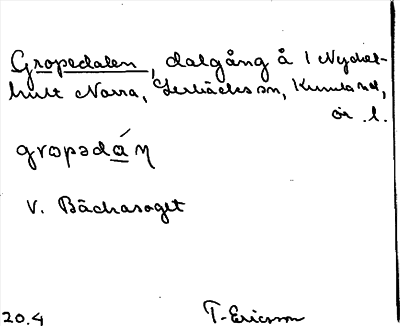 Gropedalen, dalgång å 1 Nydial-
hult Norra, Lerbäcks sn, Kumla hd,
ör. l.
gropədáη
V. Bäckaskoget
20.4 T. Ericsson